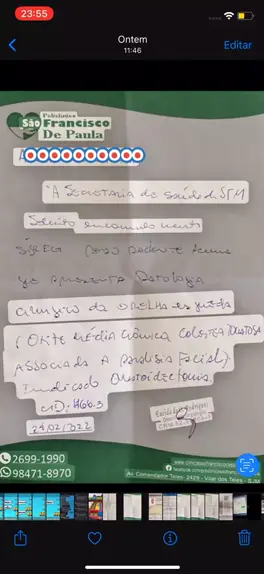 23:55
Ontem
11:46
Editar
Policlínica
São Francisco
De Paula
A Secretaria de saúde de SJM
Solicito encaminhamento
SISREG para paciente acima
que apresenta Patologia
cirurgica da ORELHA esquerda
(Otite Média Crônica Colesteatomatosa
Associada A Paralisia Facial)
Indicado Mastoidectomia
CID: H66.3
24/02/2022
2699-1990
98471-8970
Av. Comendador Teles, 2429 - Vilar dos Teles - SJM